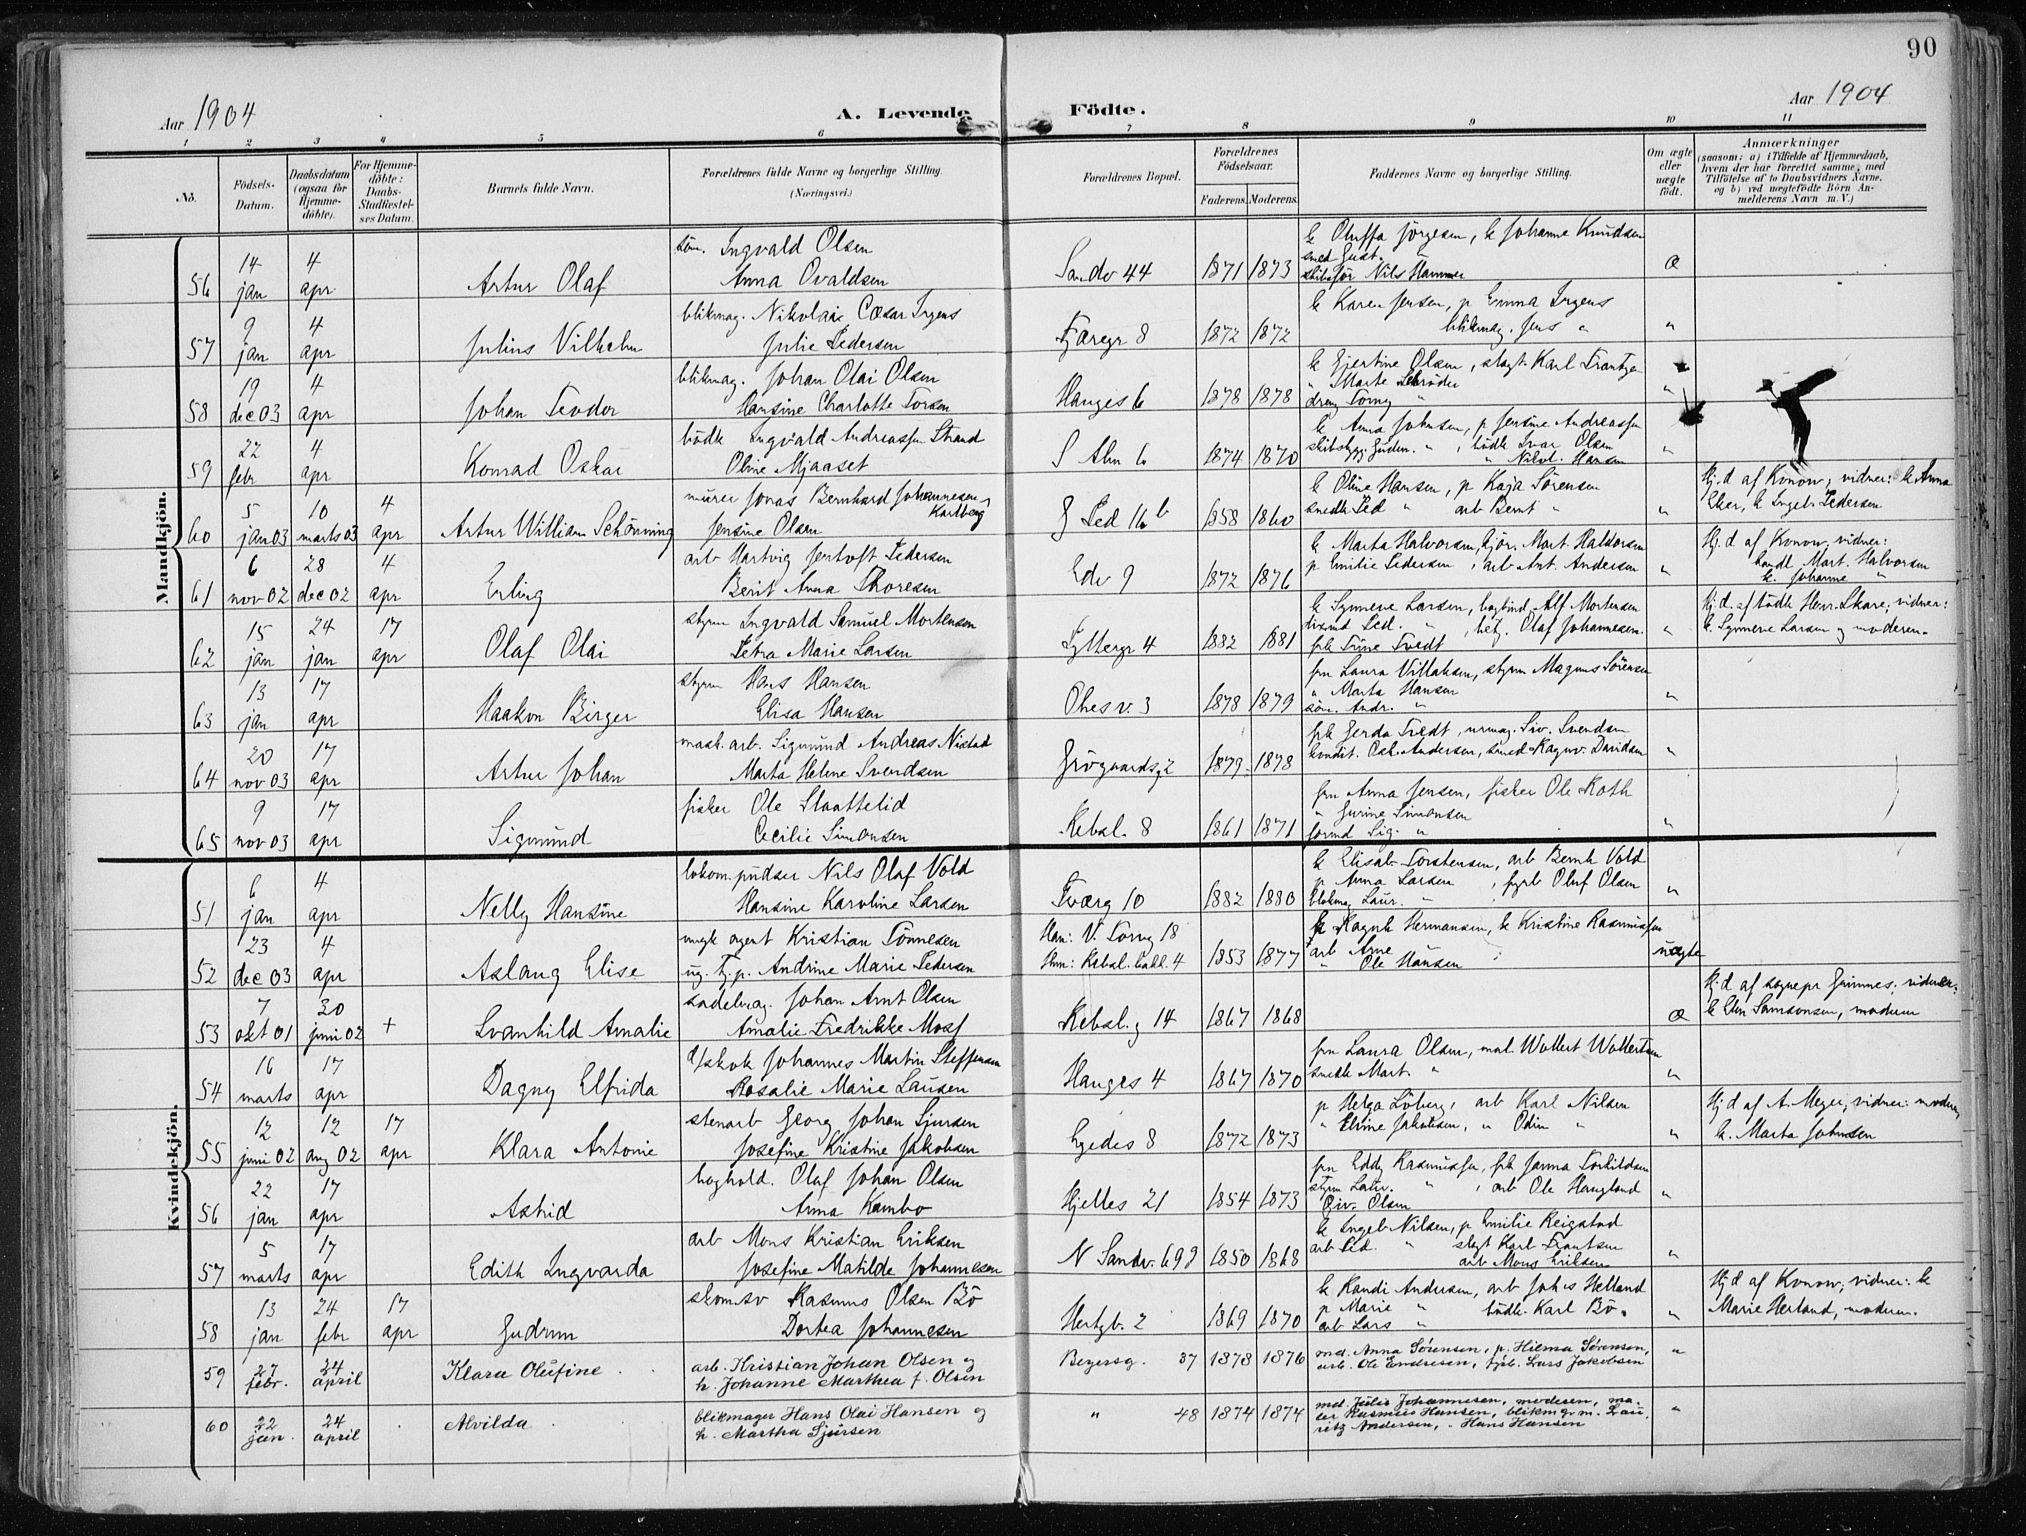 90
Aar 1904
A. Levende Födte.
Aar 1904
1 2 3 4 5 6 7 8 9 10 11
No.
Födsels-Datum.
Daabsdatum (ogsaa for Hjemme-döbte).
For Hjemme-döbte: Daabs-Stadfæstel-ses Datum.
Barnets fulde Navn.
Forældrenes fulde Navne og borgerlige Stilling. (Næringsvei.)
Forældrenes Bopæl.
Forældrenes Födselsaar.
Faderens. Moderens.
Faddernes Navne og borgerlige Stilling.
Om ægte eller uægte födt.
Anmærkninger
(saasom: a) i Tilfælde af Hjemmedaab, hvem der har forrettet samme, med Tilföielse af to Daabsvidners Navne. og b) ved uægtefödte Börn An-melderens Navn m. V.)
Mandkjön.
56 14 jan 4 apr Artur Olaf
söm. Ingvald Olsen
Anna Ovaldsen
Sandv 44 1871 1873
k Oluffa Jörgesen, k Johanne Knudsen
smed Gust. "
skibsför Nils Hammer
æ
57 9 jan 4 apr Julius Vilhelm
blikmag. Nikolai Cæsar Irgens
Julie Pedersen
Fjæregr 8 1872 1872
k Karen Jensen, p Emma Irgens
blikmag. Jens "
"
58 19 dec 03 4 apr Johan Teodor
blikmag. Johan Olai Olsen
Hansine Charlotte Torsen
Hauges 6 1878 1878
k Gjertine Olsen, slagt. Karl Frantzen
" Marte Schröder
dreng Torny "
"
59 22 febr 4 apr Konrad Oskar
bödk Ingvald Andreassen Strand
Oline Mjaaset
S Alm 6 1874 1870
k Anna Johnsen, p Jensine Andreassen
skibsbygg. Guden. " , bödk Ivar Olsen
" Nikol. Hansen
"
60 5 jan 03 10 marts 03 4 apr Artur William Schönning
murer Jonas Bernhard Johannesen Karlberg
Jensine Olsen
G Ped 16 b 1858 1860
k Oline Hansen, p Kaja Sörensen
smedk Ped " arb Bernt "
"
Hj. d af Konow; vidner: k Anna
Eker, k Ingeb. Pedersen
61 6 nov 02 28 dec 02 4 apr Erling
arb Hartvig Jentoft Pedersen
Berit Anna Thoresen
Edv 9 1872 1876
k Marta Halvorsen, kjör. Mart. Haldorsen
p Emilie Pedersen, arb Ant. Andersen
"
Hj. d af Konow; vidner:
handl. Mart. Halvorsen
k. Johanne "
62 15 jan 24 jan 17 apr Olaf Olai
styrm Ingvald Samuel Mortensen
Petra Marie Larsen
Lyttergr 4 1882 1881
k Synneve Larsen, bogbind. Alf Mortensen
Ped. " , betj. Olaf Johannesen.
frk Trine Tvedt
"
Hj. d. af bödk Henr. Skare; vidner:
k. Synneve Larsen og moderen.
63 13 jan 17 apr Haakon Birger
styrm Hans Hansen
Elisa Hansen
Ohes v. 3 1878 1879
fru Laura Villaksen, styrm Magnus Sörensen
" Marta Hansen
söm. Andr. "
"
64 20 nov 03 17 apr Artur Johan
mask. arb. Sigmund Andreas Nistad
Marta Helene Svendsen
Grögaardsg 2 1879 1878
frk Gerda Tvedt, urmag. Siv. Svendsen
kondit. Osk. Andersen, smed Ragnv. Davidsen
"
65 9 nov 03 17 apr Sigmund
fisker Ole Slaattelid
Cecilie Simonsen
Rebsl. 8 1861 1871
fru Anna Jensen, fisker Ole Roth
" Gurine Simonsen
formd Sig. "
"
Kvindekjön.
51 6 jan 4 apr Nelly Hansine
lokom. pudser Nils Olaf Vold
Hansine Karoline Larsen
Tværg 10 1882 1880
k Elisab Torstensen, arb Bernh Vold
p Anna Larsen, fyrb Oluf Olsen
blikmag. Laur. "
"
52 23 dec 03 4 apr Aslaug Elise
ungk agent Kristian Tönnesen
ug. tj. p. Andrine Marie Pedersen
Han: V. Torvg 18
Hun: Rebsl. bakk. 4 1853 1877
p Ragnh Hermansen, k Kristine Rasmussen
arb Arne "
" Ole Hansen
uægte
53 7 okt 01 30 juni 02 + Svanhild Amalie
sadelmag. Johan Arnt Olsen
Amalie Fredrikke Moss
Rebsl. g 14 1867 1868
æ
Hj. d af sognepr Grimnes; vidner:
k Elen Samsonsen, moderen
54 16 marts 17 apr Dagny Elfrida
Johannes Martin Steffensen
Rosalie Marie Lausen
Hauges 4 1867 1870
fru Laura Olsen, mal. Wollert Wollertsen
smedk Mart. "
"
55 12 juni 02 12 aug 02 17 apr Klara Antonie
stenarb Georg Johan Sjursen
Josefine Kristine Jakobsen
Egedes 8 1872 1873
p Helga Löberg, arb Karl Nilsen
" Elvine Jakobsen, " Odin "
"
Hj. d af A. Meyer; vidner: moderen,
k. Marta Johnsen
56 22 jan 17 apr Astrid
boghold. Olaf Johan Olsen
Anna Kambo
Hjelles 21 1854 1873
fru Eddy Rasmussen, frk Janna Torkildsen
styrm Latir. " , arb Ole Haugland
Eiv. Olsen
"
57 5 marts 17 apr Edith Ingvarda
arb Mons Kristian Eriksen
Josefine Matilde Johannesen
N Sandv. 69 g 1850 1868
k Ingeb Nilsen, p Emilie Reigstad
arb Ped. " slagt Karl Frantsen
arb Mons Eriksen
"
58 13 jan 24 febr 17 apr Gudrun
skom. sv Rasmus Olsen Bö
Dortea Johannesen
Hertzb. 2 1869 1870
k Randi Andersen, arb Johs Helland
p Marie " bödk. Karl Bö.
arb Lars "
"
Hj. d af Konow; vidner: k
Marie Herland, moderen.
59 27 febr. 24 april Klara Olufine
arb. Kristian Johan Olsen og
h. Johanne Marthea f. Olsen
Beyersg. 37 1873 1876
md. Anna Sörensen, p. Hilma Sörensen,
arb. Ole Endresen, fyrb. Lars Jakobsen
"
60 22 jan. 24 april Alvilda
blikmager Hans Olai Hansen og
h. Martha Sjursen
" 48 1874 1874
md. Julie Johannesen, moderen, ma-
ler Rasmus Hansen, blikm. gr. m. Lau-
ritz Andersen, " Hans Hansen
"